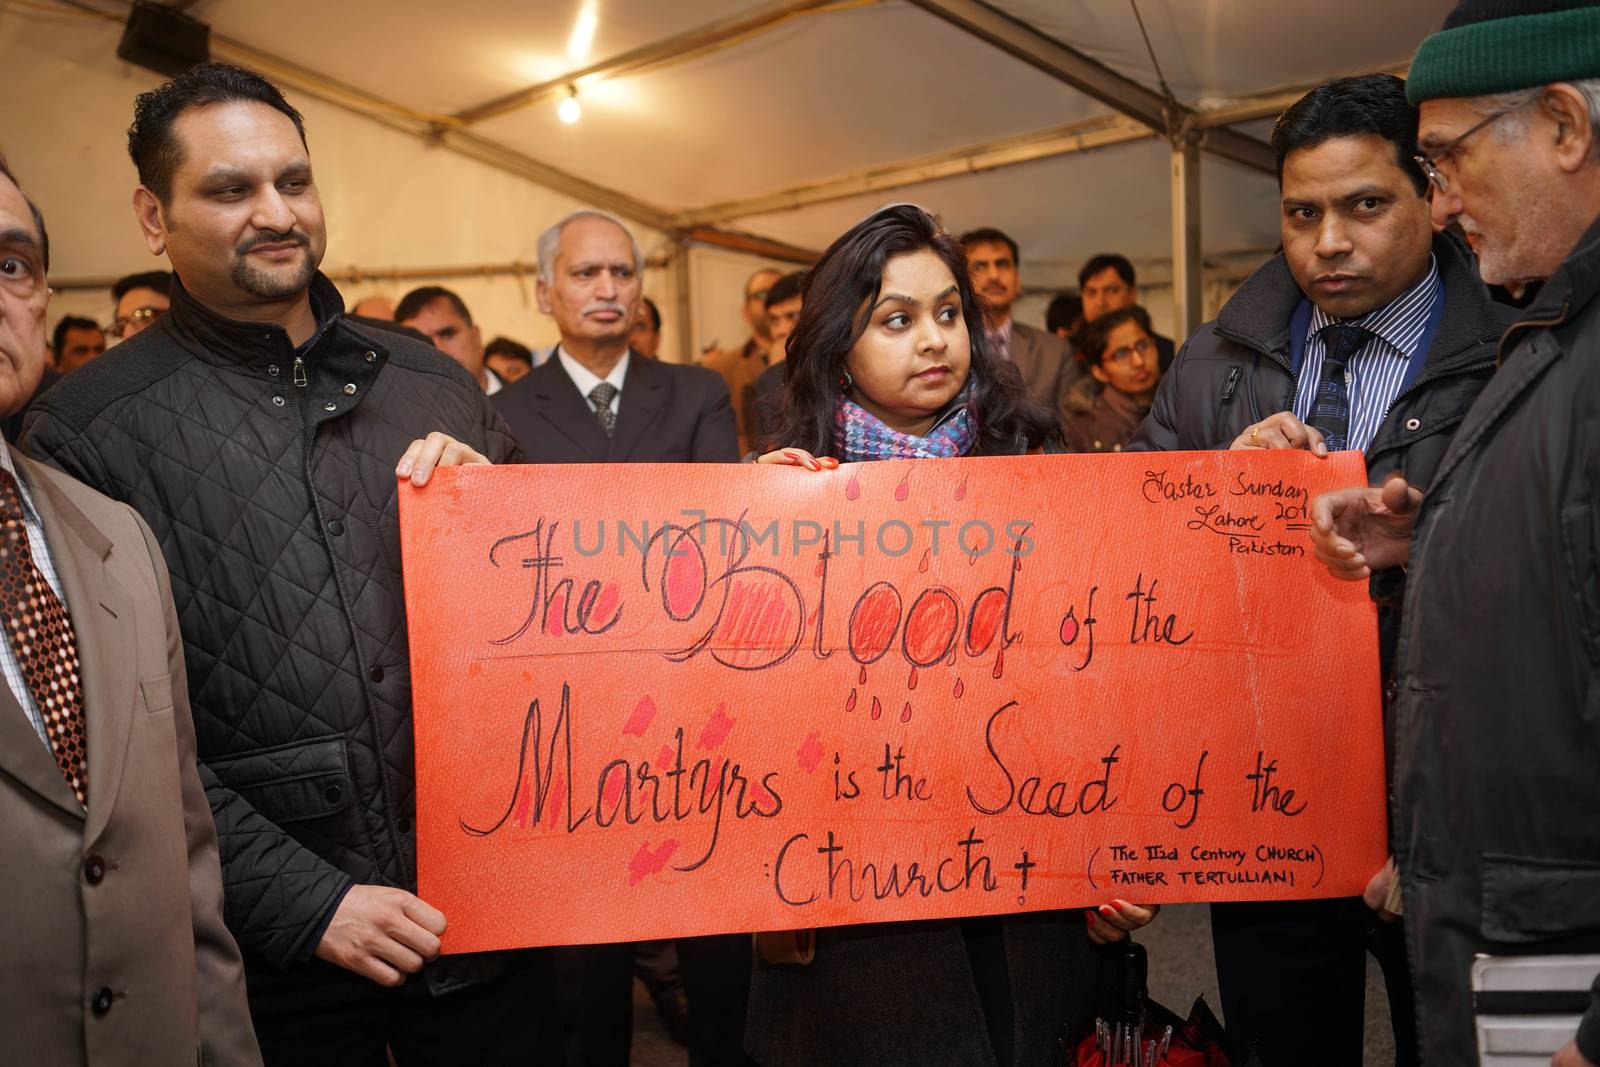 Easter Sunday
Lahore 201
Pakistan
The Blood of the
Martyrs is the Seed of the
Church
(The IInd Century CHURCH
FATHER TERTULLIAN!)
UNLIMPHOTOS